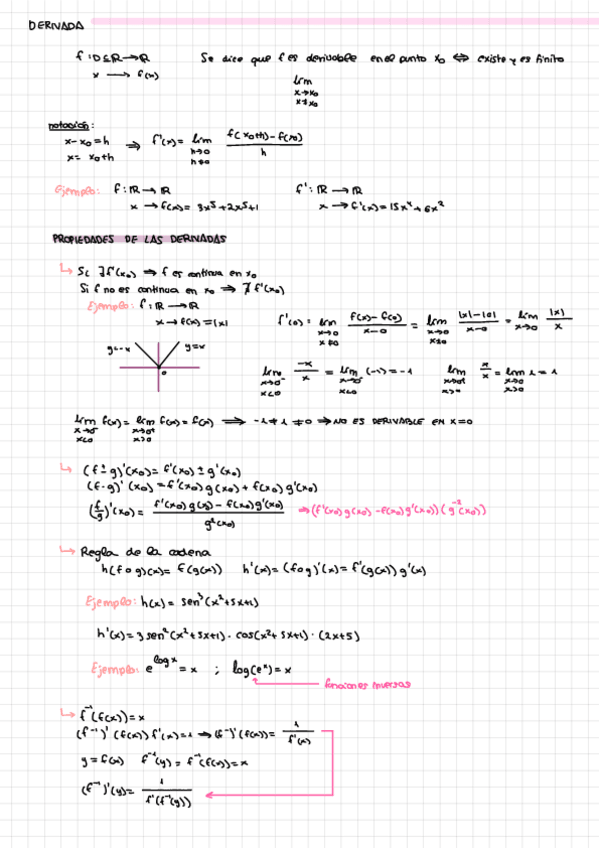 DERIVADA
f: D⊆ℝ→ℝ   Se dice que f es derivable en el punto x₀ ⟺ existe y es finito
x → f(x)   lim
x→x₀
x≠x₀
notación:
x-x₀=h ⇒ f'(x)= lim f(x₀+h)-f(x₀) / h
x= x₀+h   h→0
h≠0
Ejemplo: f: ℝ→ℝ   f': ℝ→ℝ
x → f(x)= 3x⁵+2x³+1   x → f'(x)=15x⁴+6x²
PROPIEDADES DE LAS DERIVADAS
↳ Si ∃f'(x₀) ⇒ f es continua en x₀
Si f no es continua en x₀ ⇒ ∄ f'(x₀)
Ejemplo: f: ℝ→ℝ
x→f(x)=|x|   f'(0)= lim f(x)-f(0) / x-0 = lim |x|-|0| / x-0 = lim |x| / x
x→0   x→0   x→0
x≠0   x≠0
y=-x   y=x
0
lim -x / x = lim (-1)=-1   lim x / x = lim 1 = 1
x→0⁻   x→0⁻   x→0⁺   x→0
x<0   x<0   x>0   x>0
lim f(x)= lim f(x)= f(x) ⇒ -1≠1 ≠0 ⇒ NO ES DERIVABLE EN X=0
x→0⁻   x→0⁺
x<0   x>0
↳ (f±g)'(x₀)= f'(x₀) ± g'(x₀)
(f·g)'(x₀)=f'(x₀)g(x₀)+f(x₀)g'(x₀)
(f/g)'(x₀)= f'(x₀)g(x₀)-f(x₀)g'(x₀) / g²(x₀) ⇒(f'(x₀)g(x₀)-f(x₀)g'(x₀))(g⁻²(x₀))
↳ Regla de la cadena
h(f∘g)(x)= f(g(x))   h'(x)=(f∘g)'(x)=f'(g(x))g'(x)
Ejemplo: h(x)= sen³(x²+5x+1)
h'(x)=3sen²(x²+5x+1)·cos(x²+5x+1)·(2x+5)
Ejemplo: e^(log x) = x ; log(eˣ)=x
funciones inversas
↳ f⁻¹(f(x))=x
(f⁻¹)'(f(x))f'(x)=1 → (f⁻¹)'(f(x))= 1 / f'(x)
y=f(x)   f⁻¹(y)= f⁻¹(f(x))=x
(f⁻¹)'(y)= 1 / f'(f⁻¹(y))